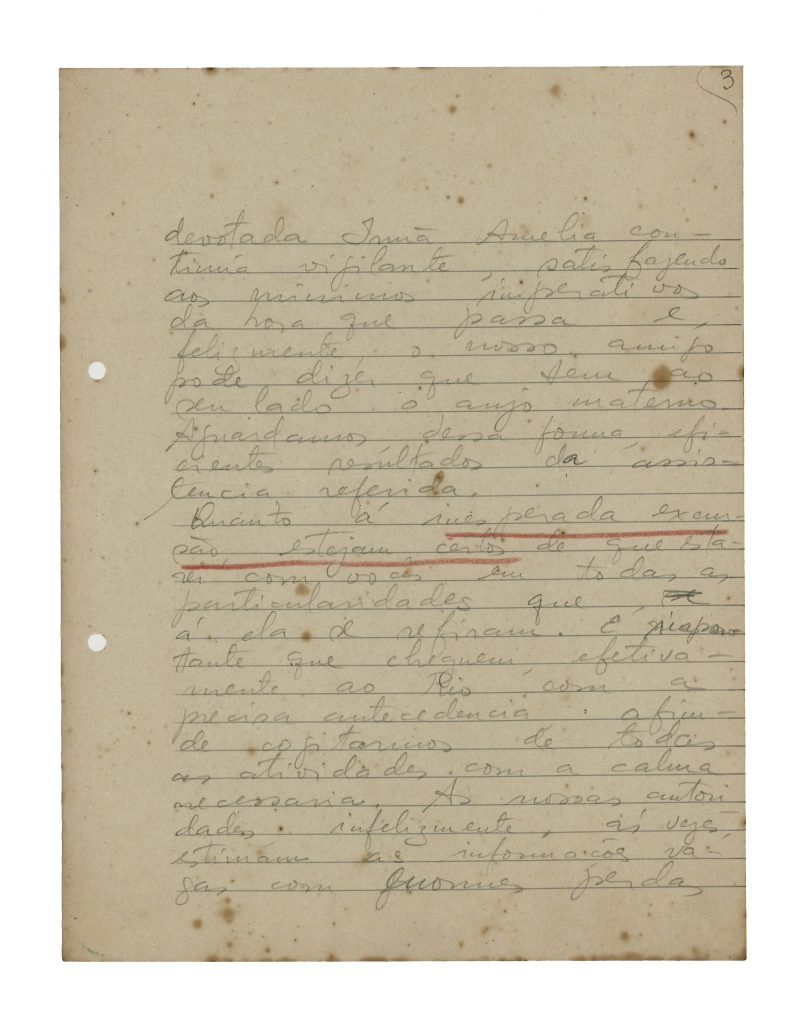 3
devotada Irmã Amelia con-
tinúa vigilante, satisfazendo
aos minimos imperativos
da hora que passa e,
felizmente o nosso amigo
póde dizer que tem ao
seu lado o anjo materno.
Aguardamos dessa forma, efi-
cientes resultados da assis-
tencia referida.
Quanto á inesperada excur-
são, estejam certos de que esta-
rei com vocês em todas as
particularidades que
á ela se refiram. É
tante que cheguem, efetiva-
mente ao Rio com a
precisa antecedencia, afim
de cogitarmos de todas
as atividades com a calma
necessaria. As nossas autori
dades, infelizmente, ás vezes,
estimam as informações va-
gas com enormes perdas